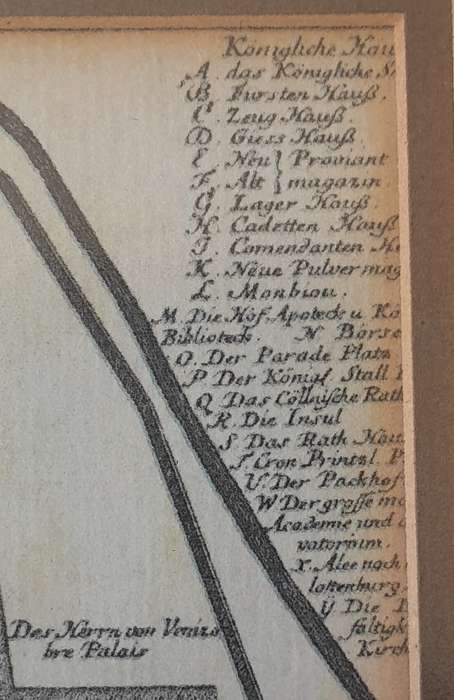 Königliche Hau
A. das Königliche S
B. Fursten Hauß.
C. Zeug Hauß.
D. Giess Hauß.
E. Neu } Proviant
F. Alt } magazin
G. Lager Hauß.
H. Cadetten Hauß
I. Comendanten H
K. Neue Pulver mag
L. Monbiou.
M. Die Hof Apoteck u Kö
Biblioteck. N Börse
O. Der Parade Platz
P Der Königl Stall
Q Das Cöllnische Rath
R. Die Insul
S. Das Rath Hau
T. Cron Printzl. P
U. Der Packhof
W Der grosse ma
Academie und o
vatorium.
x. Alee nach
lottenburg
ÿ Die
fältigk
Kirch
Des Herrn von Vernezo
bre Palais